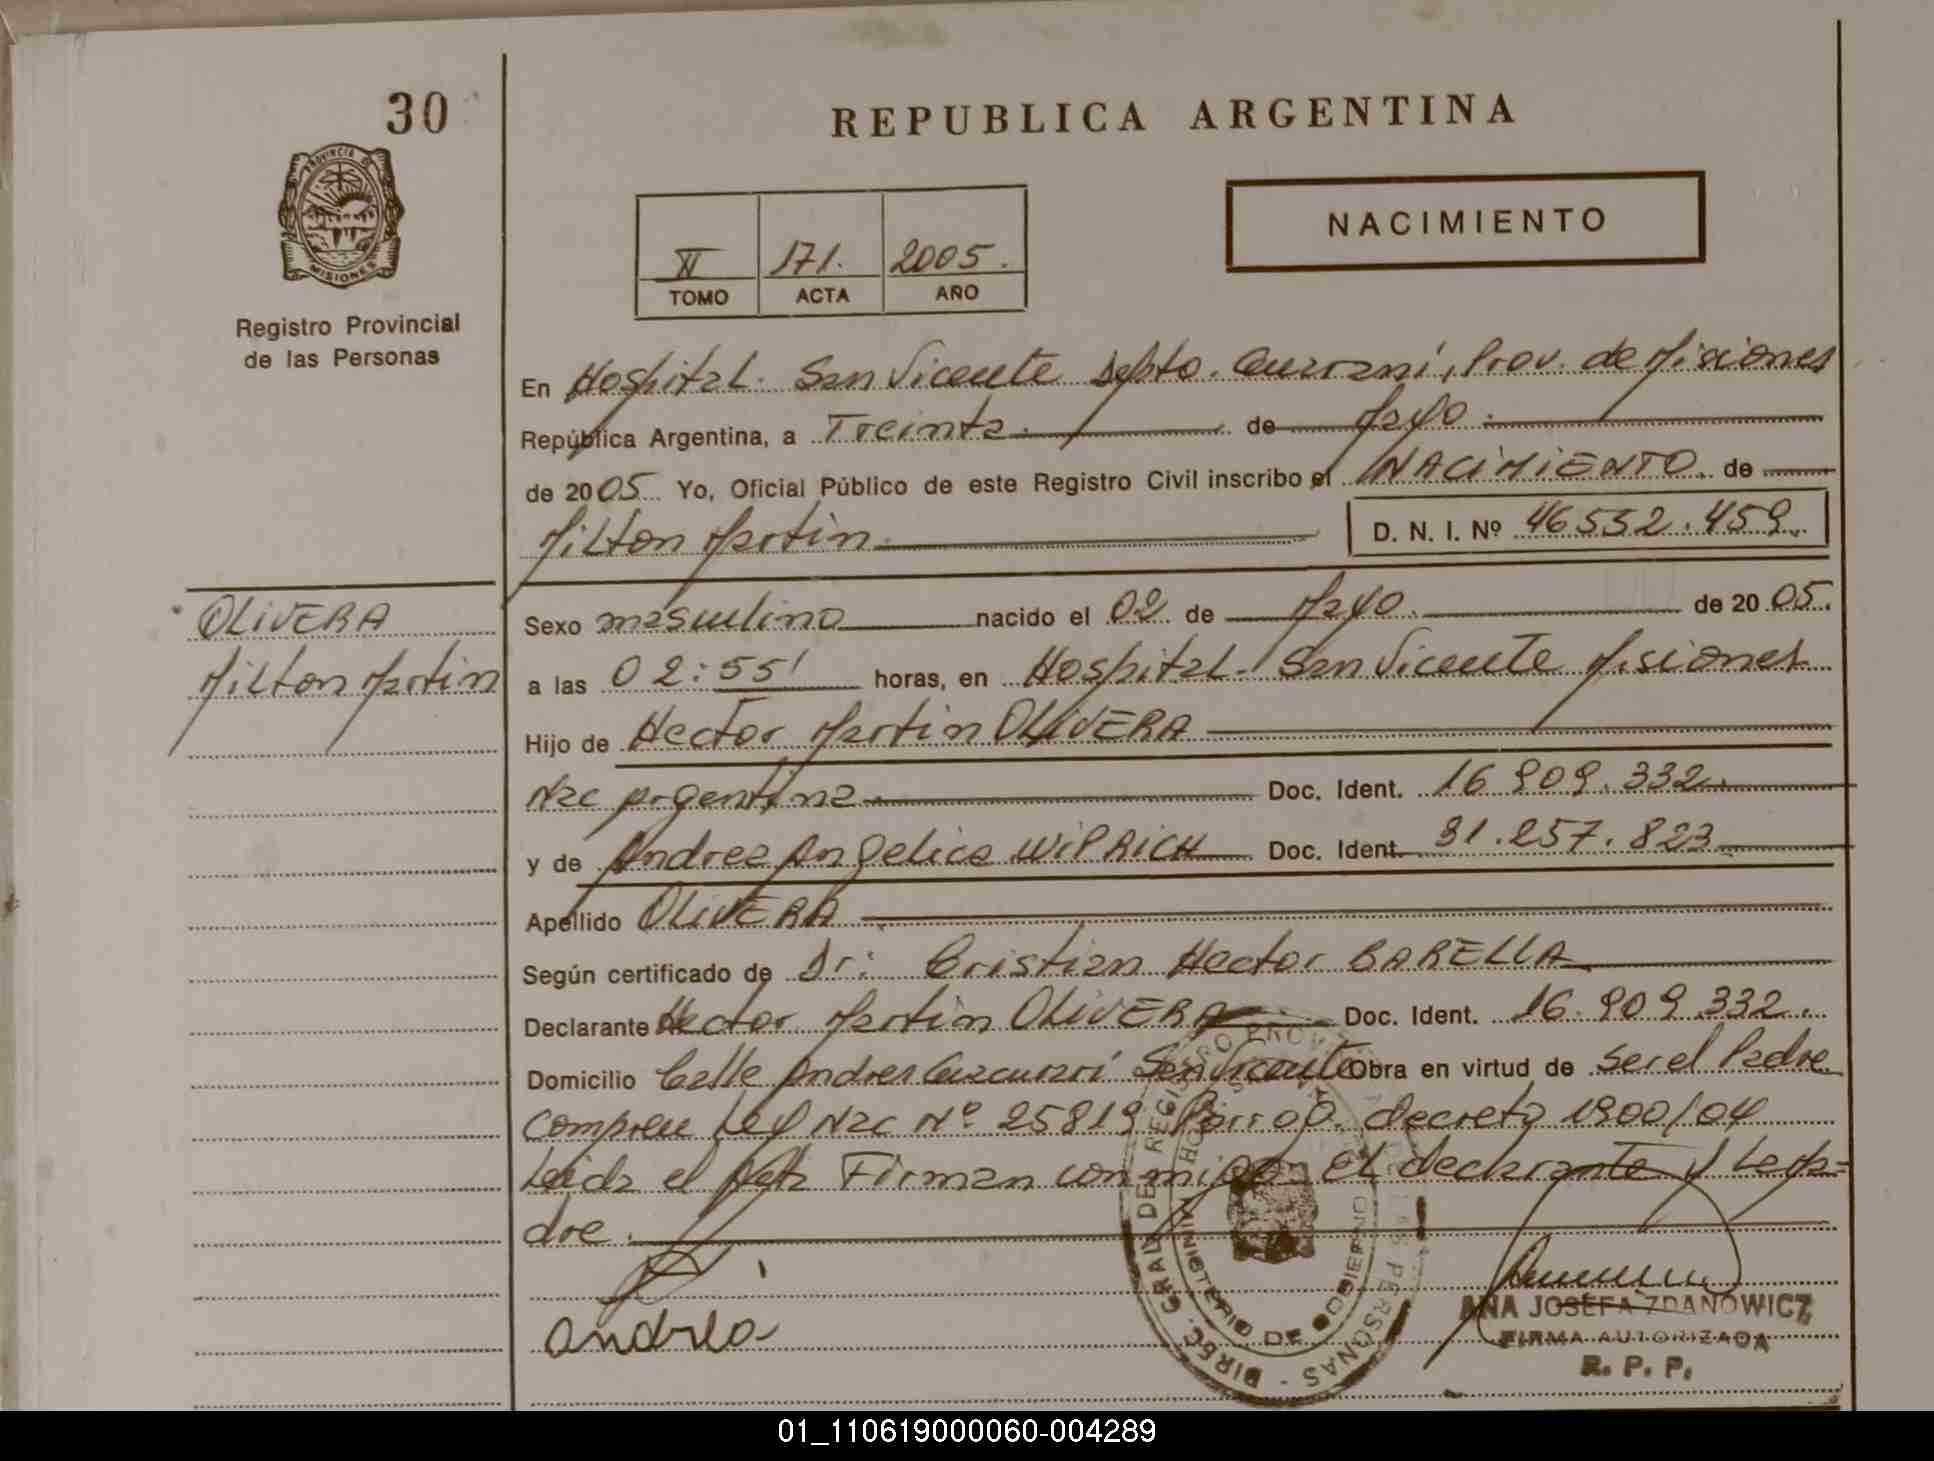 30
PROVINCIA DE
MISIONES
Registro Provincial
de las Personas
REPUBLICA ARGENTINA
NACIMIENTO
171. 2005.
TOMO ACTA AÑO
En Hospital. San Vicente Dpto. Guaraní, Prov. de Misiones
República Argentina, a Treinta. de Mayo.
de 2005. Yo, Oficial Público de este Registro Civil inscribo el NACIMIENTO. de
Milton Martin. D. N. I. Nº 46532.459.
OLIVERA
Milton Martin
Sexo masculino nacido el 02 de Mayo. de 2005.
a las 02:55' horas, en Hospital. San Vicente Misiones
Hijo de Hector Martin OLIVERA
Nac Argentina. Doc. Ident. 16.909.332.
y de Andrea Angelica WIPRICH Doc. Ident. 31.257.823
Apellido OLIVERA
Según certificado de Dr: Cristian Hector BARELLA
Declarante Hector Martin OLIVERA Doc. Ident. 16.909.332.
Domicilio Calle Andres Guacurarí San Vicente Obra en virtud de Ser el Padre
Ley Nac Nº 25819 decreto 1900/04
Leida el Acta Firman conmigo El declarante y La Ma=
dre.
Andrea
DIREC. GRAL DE REGISTRO PROV. DE LAS PERSONAS
MINISTERIO DE GOBIERNO
ANA JOSEFA ZDANOWICZ
FIRMA AUTORIZADA
R. P. P.
01_110619000060-004289